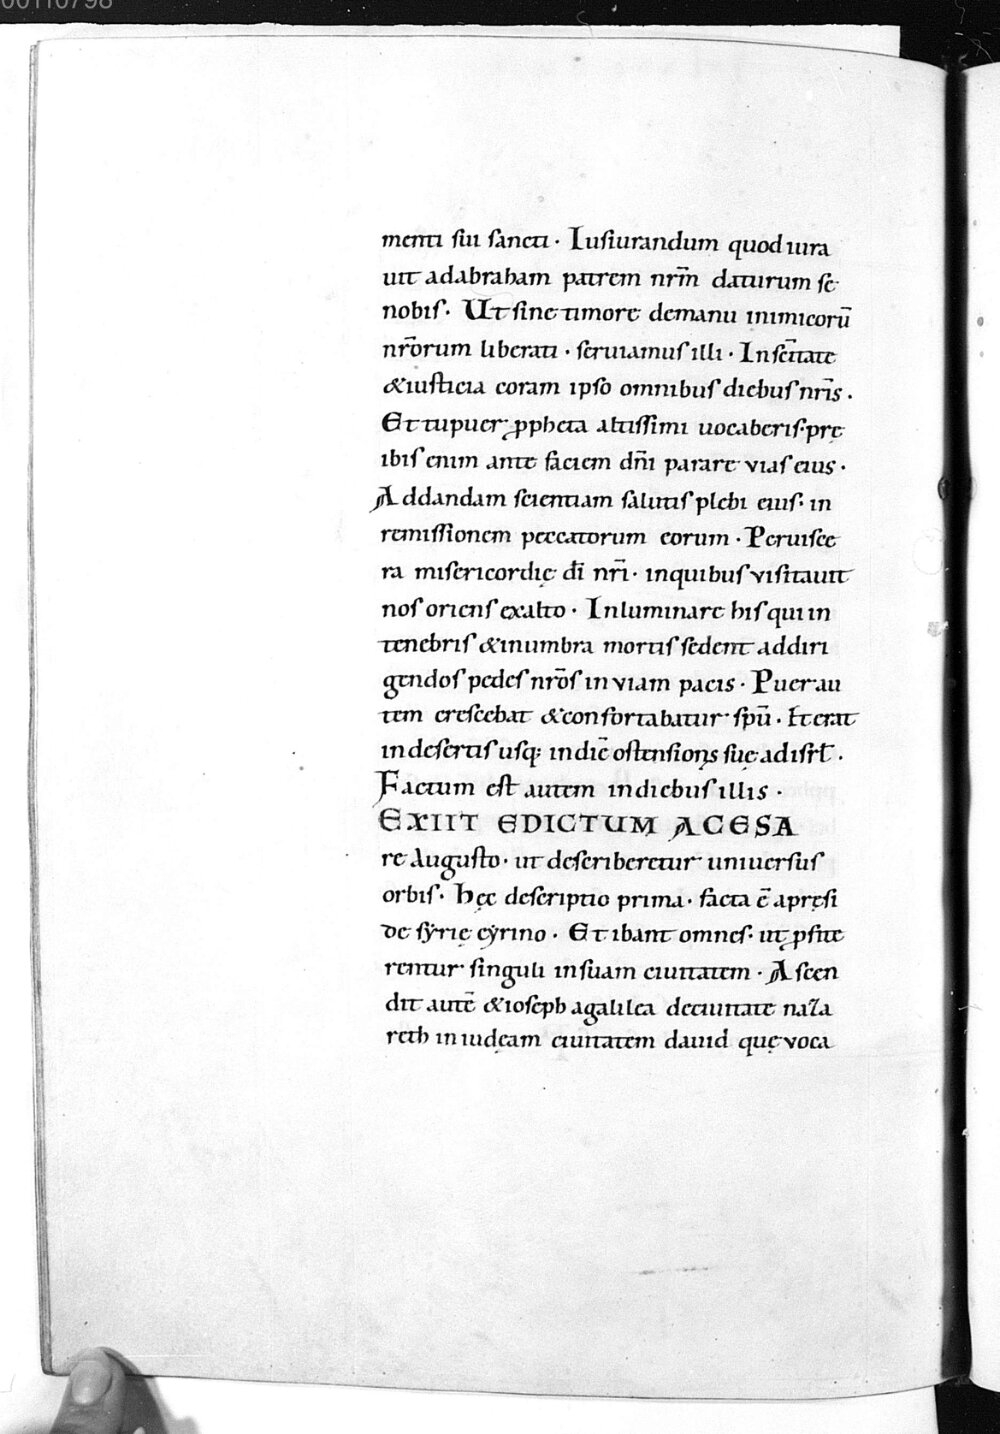 00110798
menti sui sancti · Iusiurandum quod iura
uit adabraham patrem nr̄m daturum se
nobis · Ut sine timore demanu inimicorū
nr̄orum liberati · seruiamus illi · In sc̄itate
&iusticia coram ipso omnibus diebus nr̄is ·
Et tu puer ꝓpheta altissimi uocaberis · pre
ibis enim ante faciem dn̄i parare vias eius ·
Addandam scientiam salutis plebi eius · in
remissionem peccatorum eorum · Peruisce
ra misericordię dī nr̄i · inquibus visitauit
nos oriens exalto · Inluminare his qui in
tenebris &inumbra mortis sedent addiri
gendos pedes nr̄os in viam pacis · Puer au
tem crescebat &confortabatur spū · & erat
indesertis usq; indiē ostensionis suę adisrł ·
Factum est autem indiebus illis ·
EXIIT EDICTUM ACESA
re Augusto · ut describeretur uniuersus
orbis · hęc descriptio prima · facta ē apręsi
de sẏrię cẏrino · Et ibant omnes · ut ꝓfite
rentur singuli insuam ciuitatem · Ascen
dit autē &ioseph agalilea deciuitate naza
reth in iudęam ciuitatem dauid quę voca